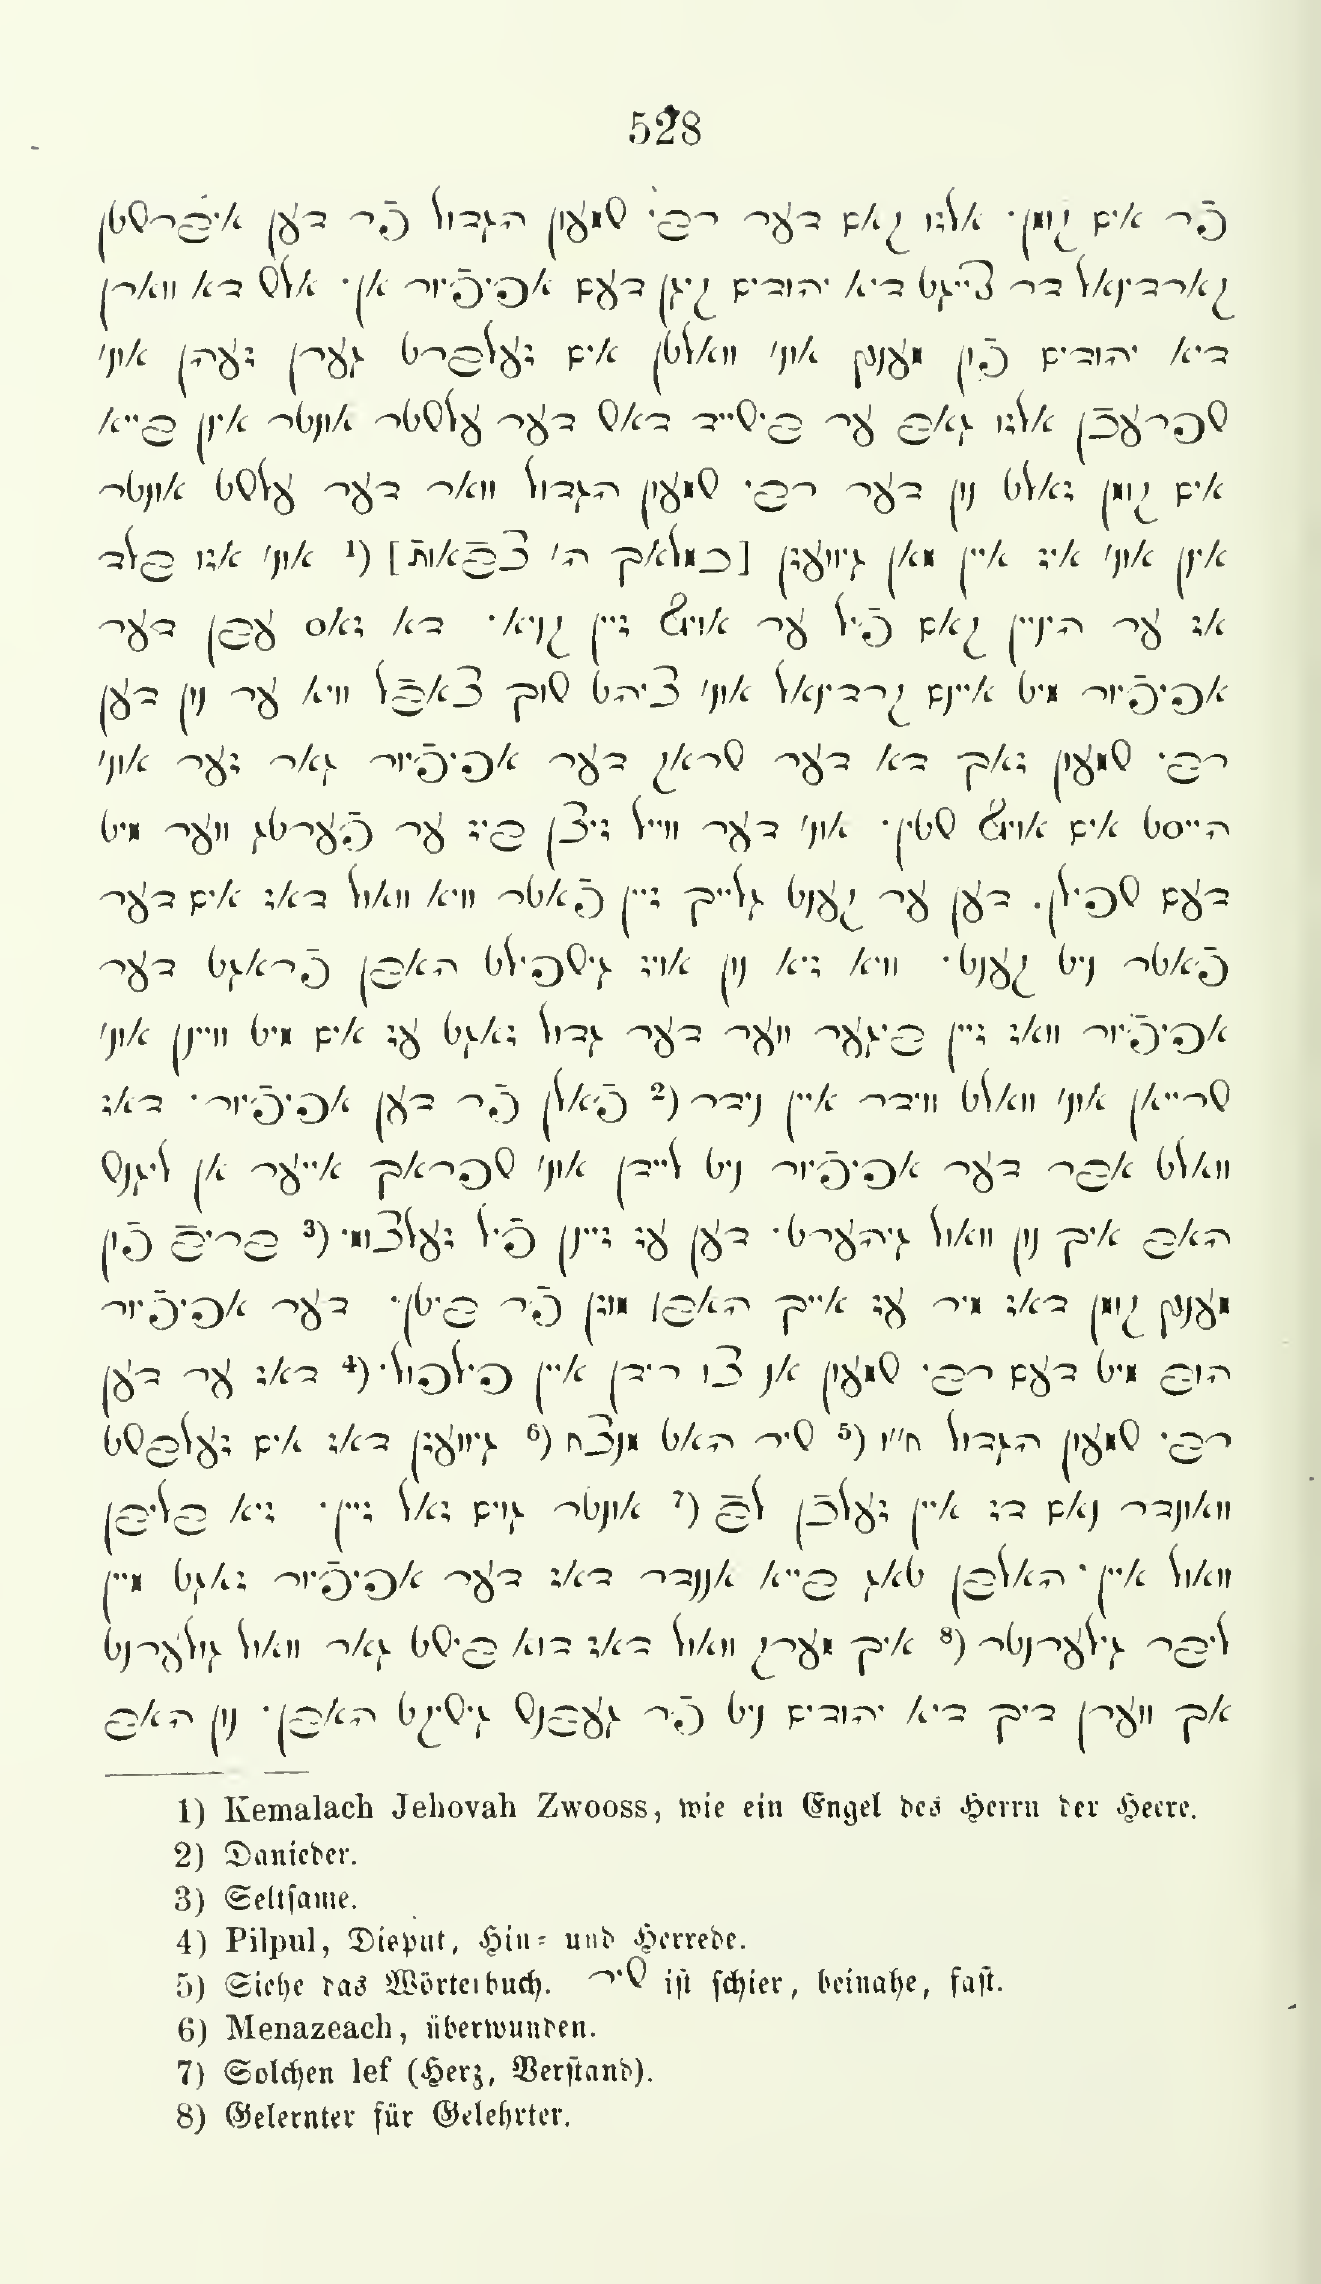 528
פֿר אים קומן· אלזו קאם דער רבי שמעון הגדול פֿר דען איברשטן
קארדינאל דר צייגט דיא יהודים קיגן דעם אפיפֿיור אן· אלש דא ווארן
דיא יהודים פֿון מענץ אונ' וואלטן אים זעלברט גערן זעהן אונ'
שפרעכֿן אלזו גאב ער בישייד דאש דער עלשטר אונטר אינן בייא
אים קומן זאלט נון דער רבי שמעון הגדול וואר דער עלשט אונטר
אינן אונ' איז איין מאן גיוועזן [כמלאך ה' צבֿאות] (1 אונ' אזו בלד
אז ער הינײן קאם פֿיל ער אויף זיין קניא· דא זאס עבן דער
אפיפֿיור מיט איינם קרדינאל אונ' ציהט שוך צאבֿל וויא ער נון דען
רבי שמעון זאך דא דער שראק דער אפיפֿיור גאר זער אונ'
הייסט אים אויף שטין· אונ' דער ווייל זיצן ביז ער פֿערטג ווער מיט
דעם שפילן. דען ער קענט גלייך זיין פֿאטר וויא וואול דאז אים דער
פֿאטר ניט קענט· וויא זיא נון אויז גישפילט האבן פֿראגט דער
אפיפֿיור וואז זיין ביגער ווער דער גדול זאגט עז אים מיט וויינן אונ'
שרייאן אונ' וואלט ווידר איין נידר (2 פֿאלן פֿר דען אפיפֿיור· דאז
וואלט אבר דער אפיפֿיור ניט ליידן אונ' שפראך אייער אן ליגנש
האב איך נון וואול גיהערט· דען עז זיינן פֿיל זעלצומי (3 בריבֿ פֿון
מענץ קומן דאז מיר עז אייך האבן מוזן פֿר ביטן· דער אפיפֿיור
הוב מיט דעם רבי שמעון אן צו רידן איין פילפול· (4 דאז ער דען
רבי שמעון הגדול ח"ו (5 שיר האט מנצח (6 גיוועזן דאז אים זעלבשט
וואונדר נאם דז איין זעלכֿן לבֿ (7 אונטר גוים זאל זיין· זיא בליבן
וואול איין· האלבן טאג בייא אננדר דאז דער אפיפֿיור זאגט מיין
ליבר גילערנטר (8 איך מערק וואול דאז דוא בישט גאר וואול גולערנט
אך ווערן דיך דיא יהודים ניט פֿר געבנש גישיקט האבן· נון האב
1) Kemalach Jehovah Zwooss, wie ein Engel des Herrn der Heere.
2) Danieder.
3) Seltsame.
4) Pilpul, Disput, Hin= und Herrede.
5) Siehe das Wörterbuch. שיר ist schier, beinahe, fast.
6) Menazeach, überwunden.
7) Solchen lef (Herz, Verstand).
8) Gelernter für Gelehrter.